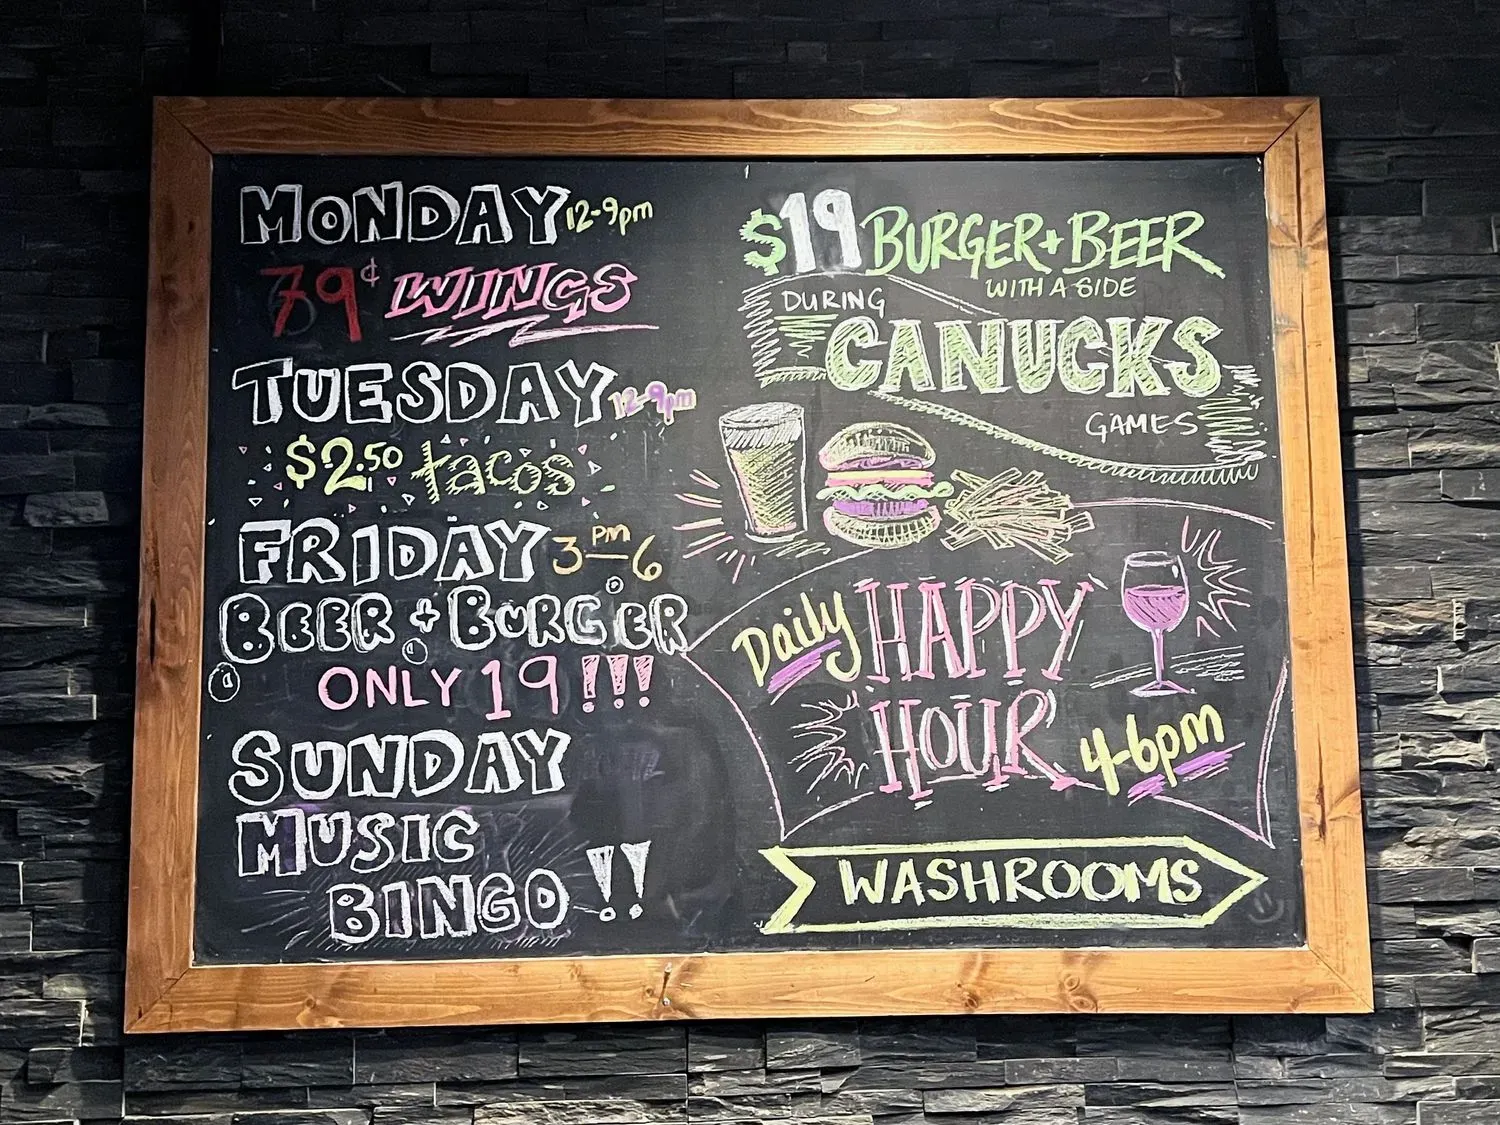 MONDAY 12-9pm
79¢ WINGS
TUESDAY 12-9pm
$2.50 tacos
FRIDAY 3-6 pm
BEER + BURGER
ONLY 19 !!!
SUNDAY
MUSIC
BINGO !!
$19 BURGER + BEER
WITH A SIDE
DURING
CANUCKS
GAMES
Daily HAPPY
HOUR 4-6pm
WASHROOMS